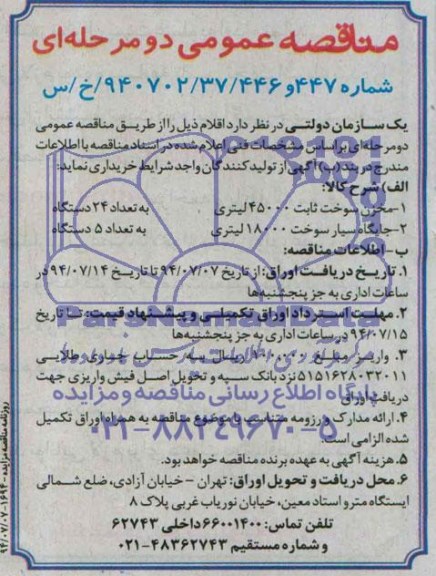 مناقصه عمومی دو مرحله‌ای
شماره ۴۴۷و ۹۴۰۷۰۲/۳۷/۴۴۶/خ/س
یک سازمان دولتی در نظر دارد اقلام ذیل را از طریق مناقصه عمومی
دومرحله‌ای براساس مشخصات فنی اعلام شده در اسناد مناقصه با اطلاعات
مندرج در بند (ب) آگهی از تولیدکنندگان واجد شرایط خریداری نماید:
الف) شرح کالا:
۱-مخزن سوخت ثابت ۴۵۰۰۰ لیتری به تعداد ۲۴ دستگاه
۲-جایگاه سیار سوخت ۱۸۰۰۰ لیتری به تعداد ۵ دستگاه
ب-اطلاعات مناقصه:
۱. تاریخ دریافت اوراق: از تاریخ ۹۴/۰۷/۰۷ تا تاریخ ۹۴/۰۷/۱۴ در
ساعات اداری به جز پنجشنبه‌ها
۲. مهلت استرداد اوراق تکمیلی و پیشنهاد قیمت: تا تاریخ
۹۴/۰۷/۱۵ در ساعات اداری به جز پنجشنبه‌ها
۳. واریز مبلغ ریال به حساب جاری طلایی
۵۱۵۱۶۲۸۰۳۲۰۱۱ نزد بانک سپه و تحویل اصل فیش واریزی جهت
دریافت اوراق
۴. ارائه مدارک و رزومه متناسب با موضوع مناقصه به همراه اوراق تکمیل
شده الزامی است.
۵. هزینه آگهی به عهده برنده مناقصه خواهد بود.
۶. محل دریافت و تحویل اوراق: تهران – خیابان آزادی، ضلع شمالی
ایستگاه مترو استاد معین، خیابان نوریاب غربی پلاک ۸
تلفن تماس: ۶۶۰۰۱۴۰۰ داخلی ۶۲۷۴۳
و شماره مستقیم ۴۸۳۶۲۷۴۳-۰۲۱
روزنامه مناقصه مزایده - ۱۶۹۴-۹۴/۰۷/۰۷
ParsNamadData
پایگاه اطلاع رسانی مناقصه و مزایده
۰۲۱-۸۸۳۴۹۶۷۰-۵